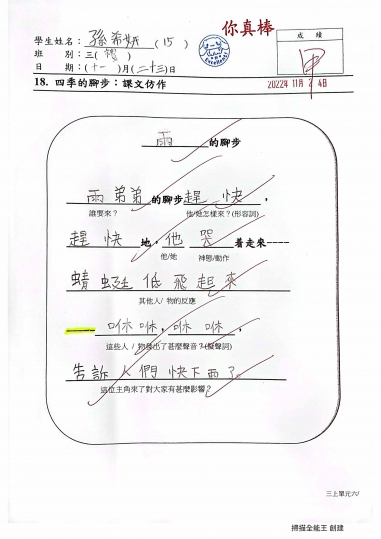 你真棒
學生姓名：孫希 (15)
成績
甲
班 別：三( )
Excellent
日 期：(十一)月(二十三)日
18. 四季的腳步：課文仿作
2022年 11月 2 4日
雨 的腳步
雨弟弟 的腳步 趕快，
誰要來？ 他/她怎樣來？(形容詞)
趕快 地，他 哭 着走來----
他/她 神態/動作
蜻蜓低飛起來
其他人/ 物的反應
咻咻，咻咻，
這些人/ 物發出了甚麼聲音？(擬聲詞)
告訴人們快下雨了
這位主角來了對大家有甚麼影響？
三上單元六/
掃描全能王 創建